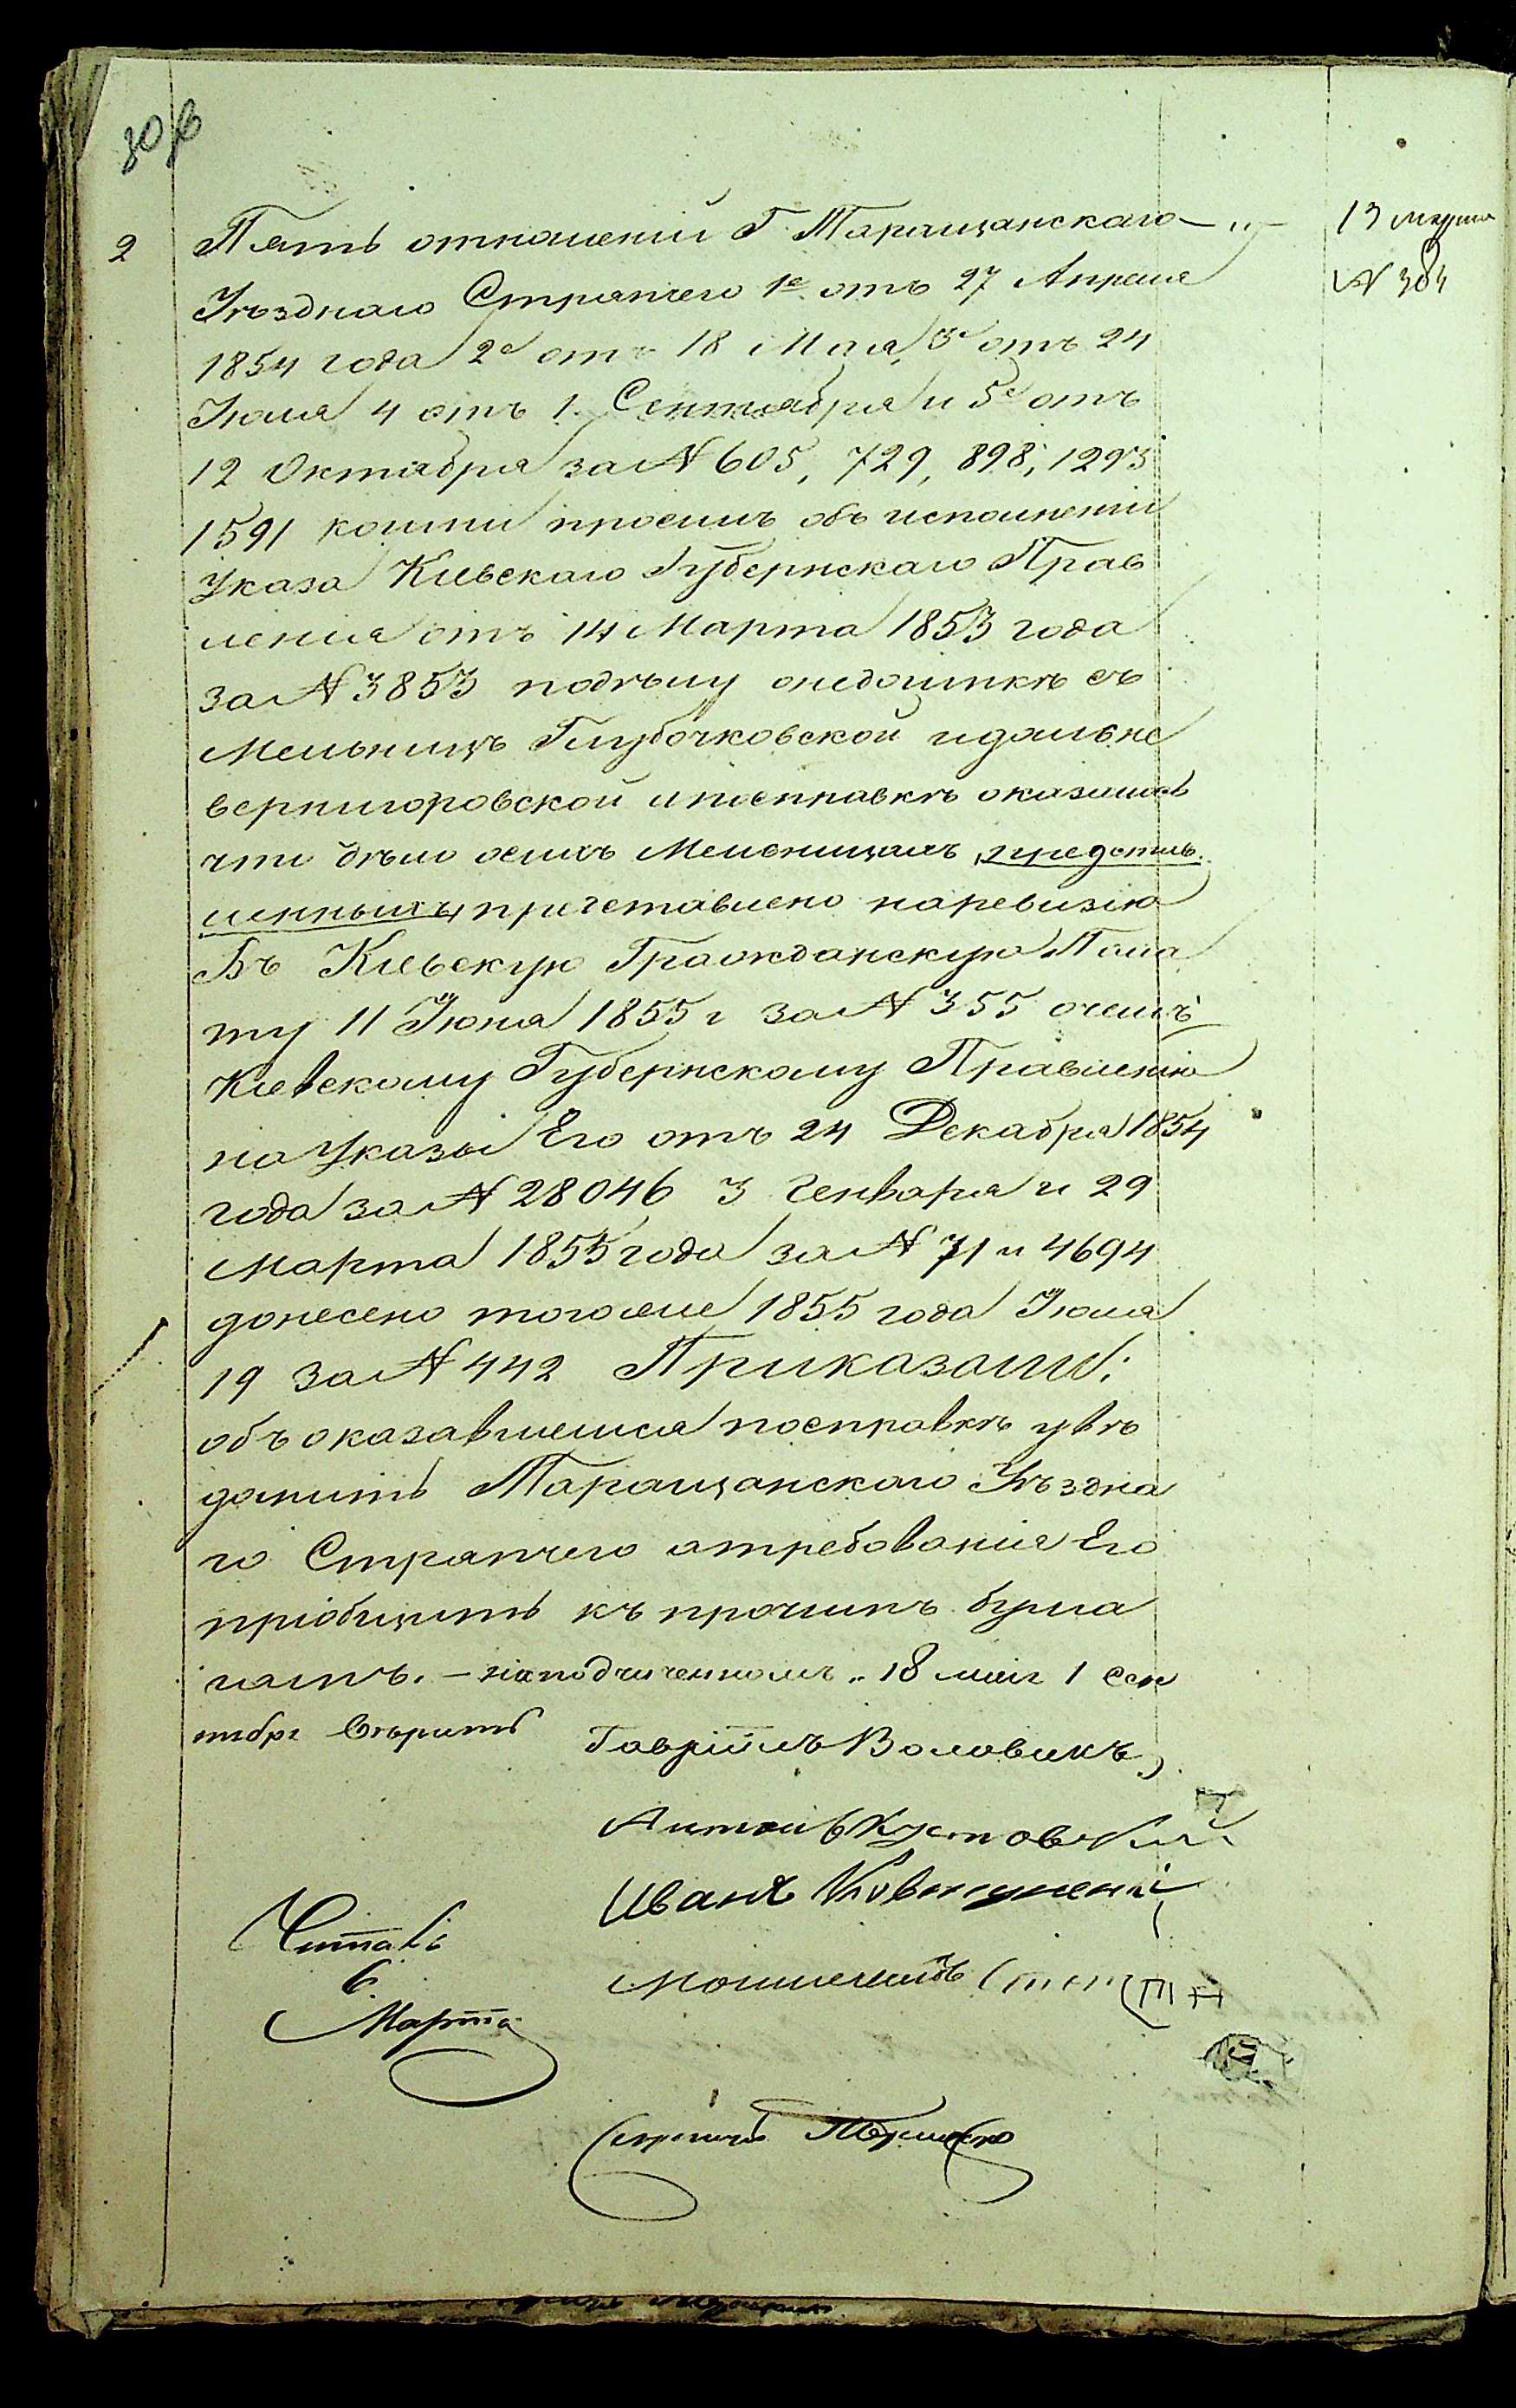 30 об
2
Пять отношеній Г. Таращанскаго
Уѣзднаго Стряпчего 1е отъ 27 Апреля
1854 года 2е отъ 18 Мая, 3е отъ 24
Іюля 4 отъ 1 Сентября и 5е отъ
12 Октября за N 605, 729, 898, 1293
1591 коими просилъ объ исполненіи
Указа Кіевскаго Губернскаго Прав
ленія отъ 14 Марта 1853 года
за N 3853 по дѣлу о недоимкѣ съ
Мельницъ Глубочковской и
вернигоровской и по справкѣ оказалось
что дѣло о сихъ Мельницахъ
представлено на ревизію
Въ Кіевскую Гражданскую Пала
ту 11 Іюня 1855 г за N 355 о чемъ
Кіевскому Губернскому Правленію
на Указы Его отъ 24 Декабря 1854
года за N 28046 3 Генваря и 29
Марта 1855 года за N 71 и 4694
донесено того же 1855 года Іюля
19 за N 442 Приказали:
объ оказавшемся по справкѣ увѣ
домить Таращанскаго Уѣздна
го Стряпчего а требованія Его
пріобщить къ прочимъ бума
гамъ. — на подчищенномъ „ 18 мая 1 Сен
тябр вѣрить
Гавріилъ Воловикъ
Антонъ Кустовскій
Иванъ
Читалъ
6
Марта
13 марта
N 384